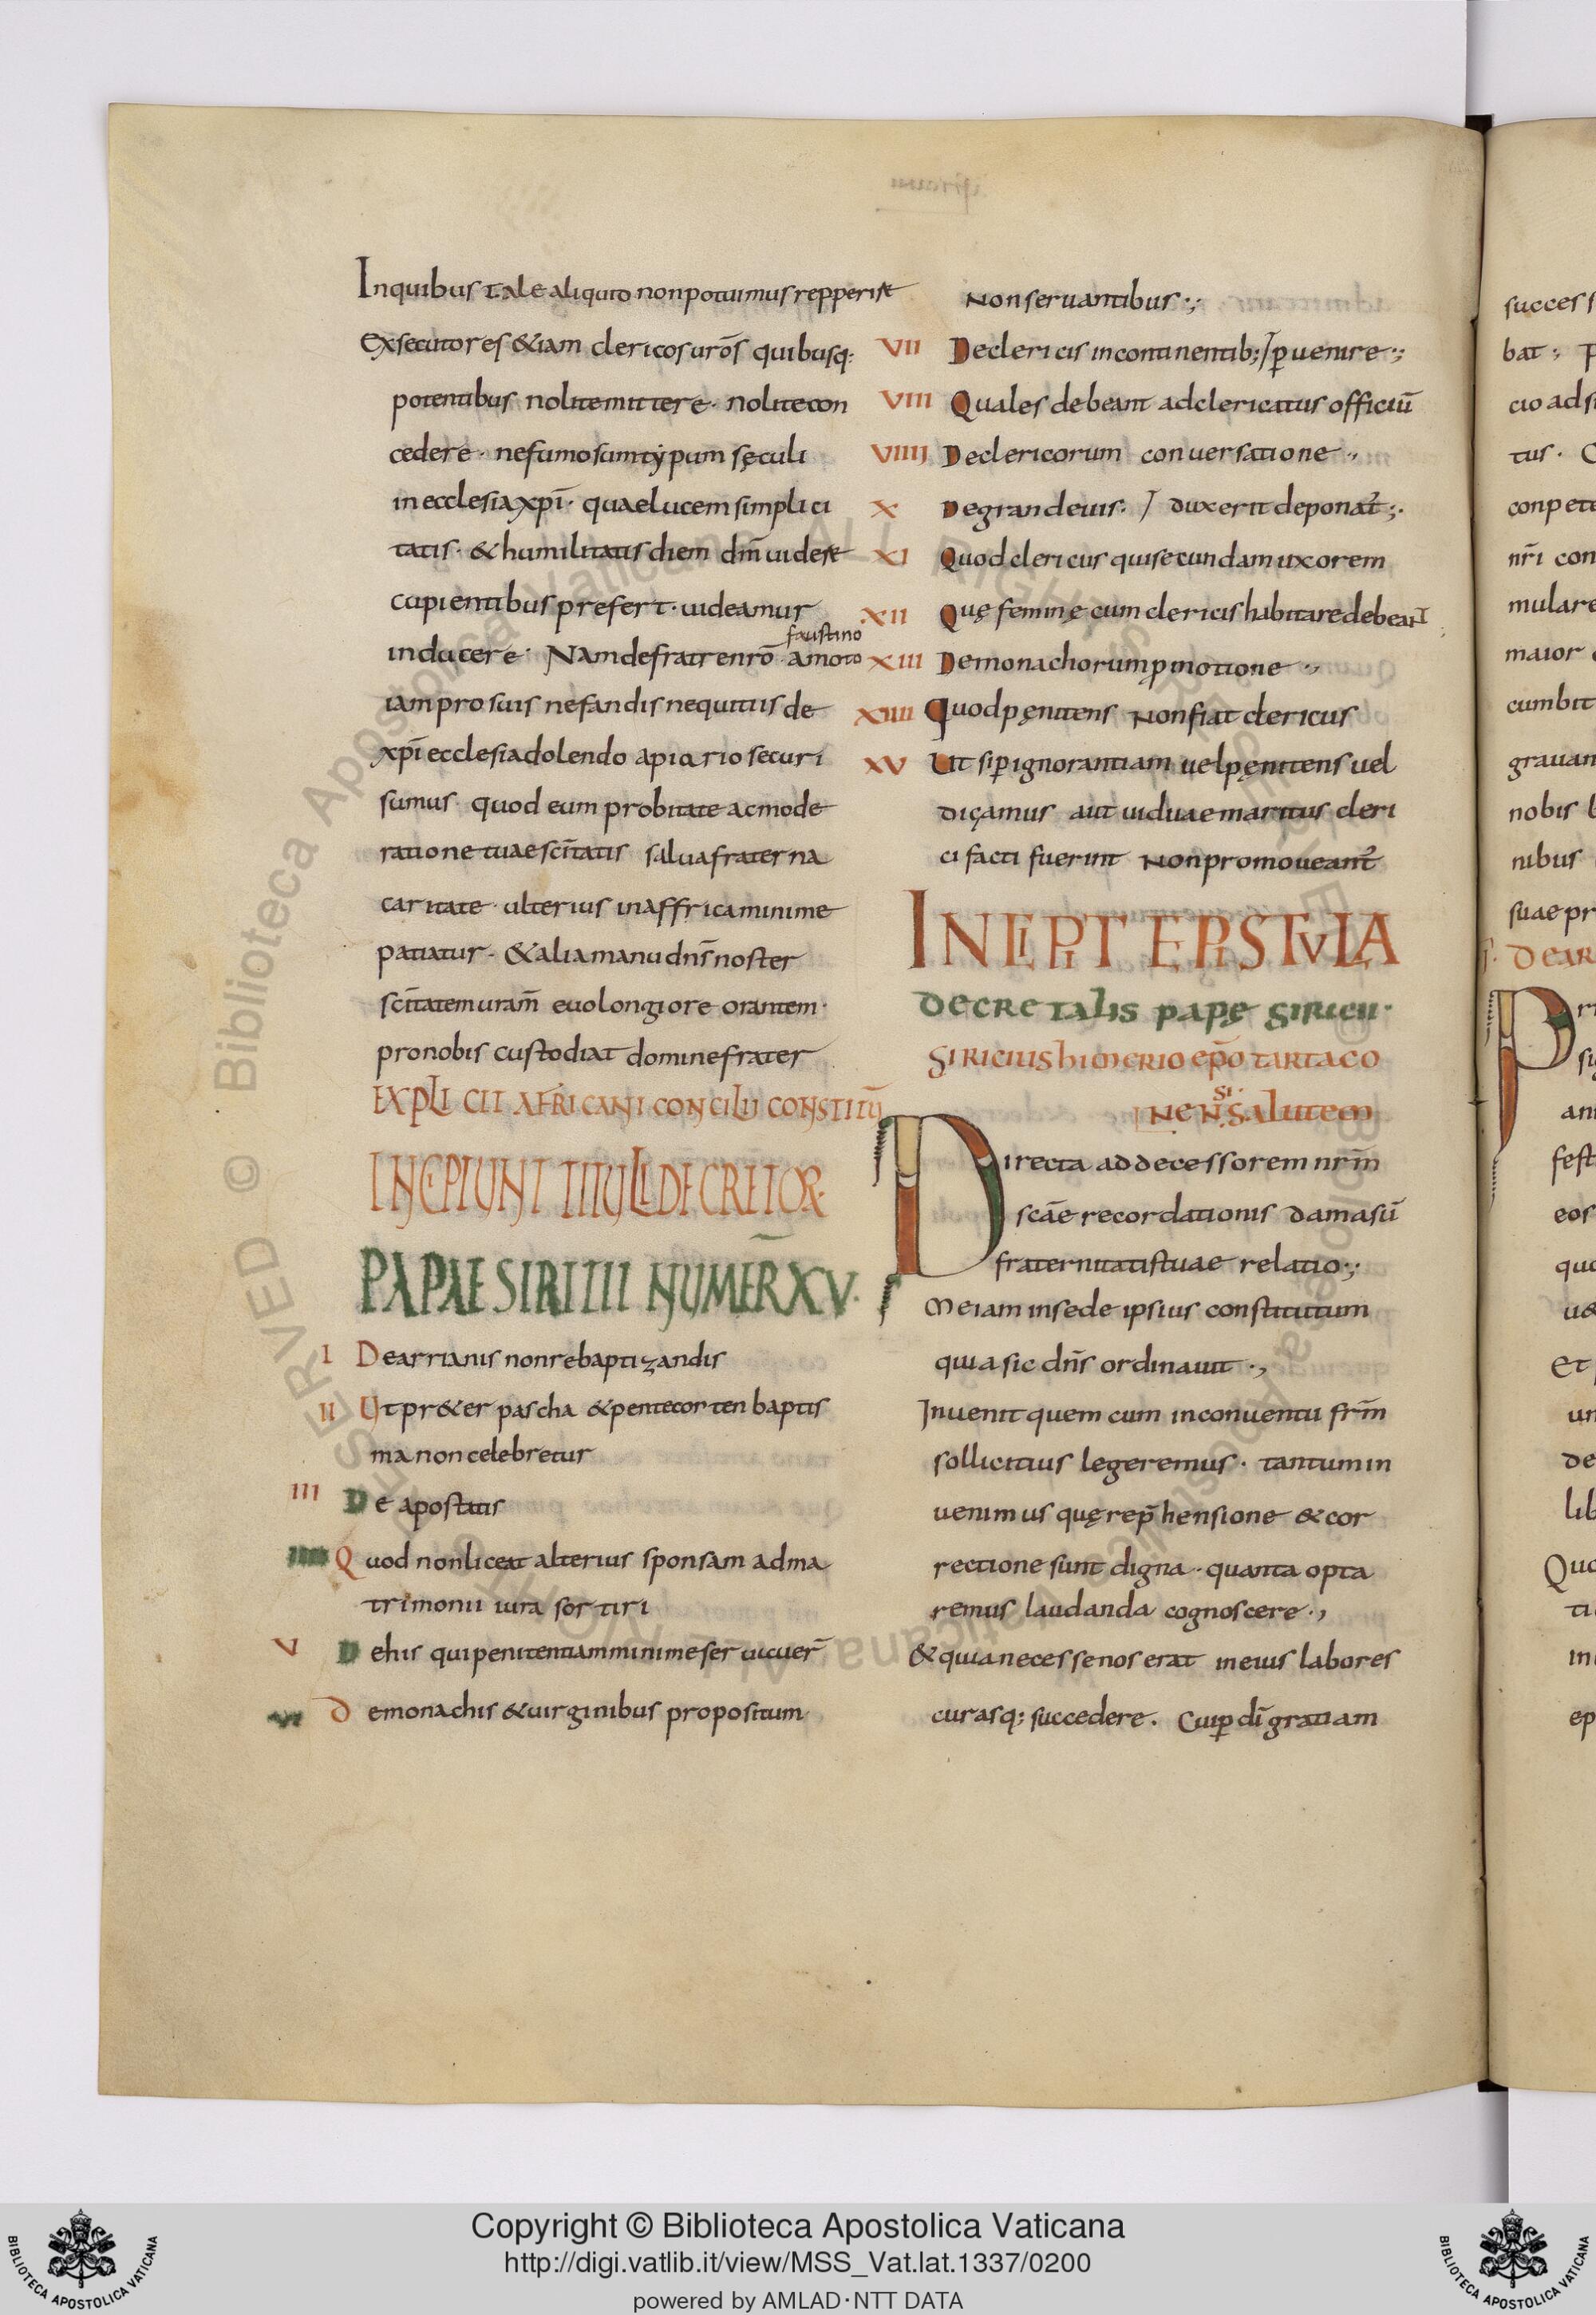 Inquibus tale aliquto nonpotuimus repperi&
Exsecutores &iam clericos urōs quibusq;
potentibus nolite mittere · nolite con
cedere · ne fumosum typum sęculi
in ecclesia xp̄i · quae lucem simplici
tatis · & humilitatis diem dm̄ uidere
cupientibus prefert · uideamur
faustino
inducere · Nam de fratre nr̄o amoto
iam pro suis nefandis nequitiis de
xp̄i ecclesia dolendo apiario securi
sumus quod eum probitate ac mode
ratione tuae sc̄itatis salua fraterna
caritate · ulterius in affrica minime
patiatur · & alia manu dn̄s noster
sc̄itatem uram̄ euo longiore orantem ·
pro nobis custodiat domine frater
EXPLICIT AFRICANI CONCILII CONSTITŪ
INCIPIUNT TITULI DECRETOR
PAPAE SIRITII NUMER̄ XV ·
I De arrianis non rebaptizandis
II Ut pr&er pascha & pentecosten baptis
ma non celebretur
III De apostatis
IIII Quod non liceat alterius sponsam ad ma
trimonii iura sortiri
V De his qui penitentiam minime seruauer̄
VI De monachis & uirginibus propositum
Non seruantibus ·;
VII De clericis incontinentib; / ꝑuenire ·;
VIII Quales debeant ad clericatus officiū
VIIII De clericorum conuersatione ·,
X De grandeuis · / duxerit deponat̄ ;·
XI Quod clericus qui secundam uxorem
XII Quę feminę cum clericis habitare debeant
XIII De monachorum ꝓmotione ·,
XIIII Quod pęnitens Non fiat clericus
XV Ut si ꝑ ignorantiam uel pęnitens uel
digamus aut uiduae maritus cleri
ci facti fuerint Non promoueant̄
INCIPIT EPISTULA
DECRETALIS PAPĘ SIRICII ·
SIRICIUS HIMERIO EP̄O TARTACO
SI
NENS SALUTEM
Directa ad decessorem nr̄m
sc̄ae recordationis damasū
fraternitatis tuae relatio ·;
Me iam in sede ipsius constitutum
quia sic dn̄s ordinauit ·,
Inuenit quem cum in conuentu fr̄m
sollicitius legeremus · tantum in
uenimus quę rep̄hensione & cor
rectione sunt digna · quanta opta
remus laudanda cognoscere ·,
& quia necesse nos erat in eius labores
curasq; succedere . Cui ꝑ di̅ gratiam
Copyright © Biblioteca Apostolica Vaticana
http://digi.vatlib.it/view/MSS_Vat.lat.1337/0200
powered by AMLAD·NTT DATA